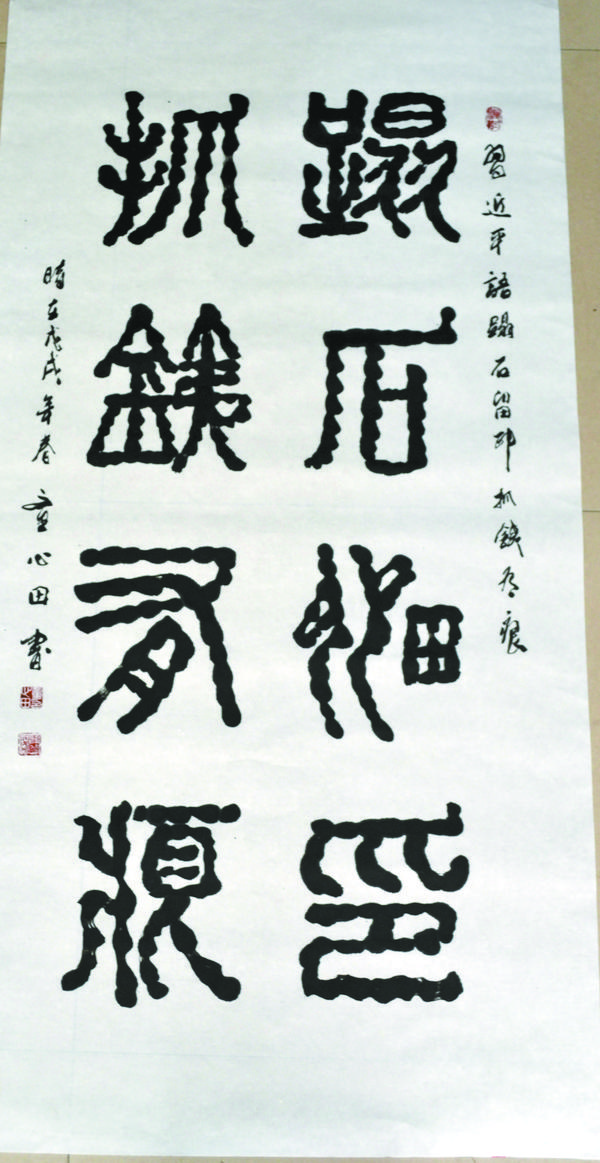 習近平語蹋石留印抓銕有痕
蹋石留印
抓銕有痕
時在戊戌年春童心田書